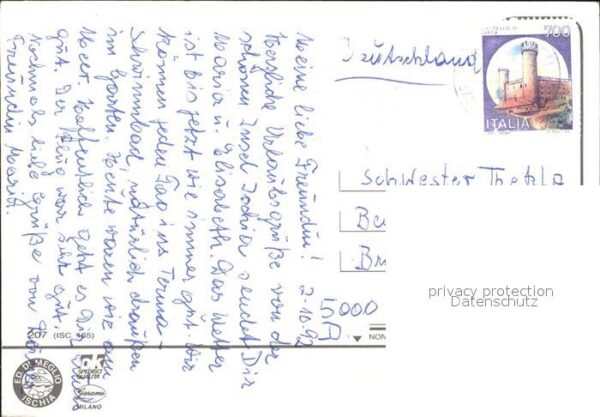 Meine liebe Freundin! 2-10.92
Herzliche Urlaubsgrüße von der
schönen Insel Ischia sendet Dir
Maria u. Elisabeth. Das Wetter
ist bis jetzt wie immer gut. Wir
können jeden Tag ins Terma-
Schwimmbad natürlich draußen
im Garten. Heute waren wir am
Meer. Hoffentlich geht es Dir auch
gut. Der Flug war sehr gut.
Nochmals liebe Grüße von Deiner
Freundin Maria.
Deutschland
700
ITALIA
Schwester Thekla
Be
Br
5000
207 (ISC 165)
NON
ED. DI MEGLIO
ISCHIA
OK
Garami
MILANO
privacy protection
Datenschutz